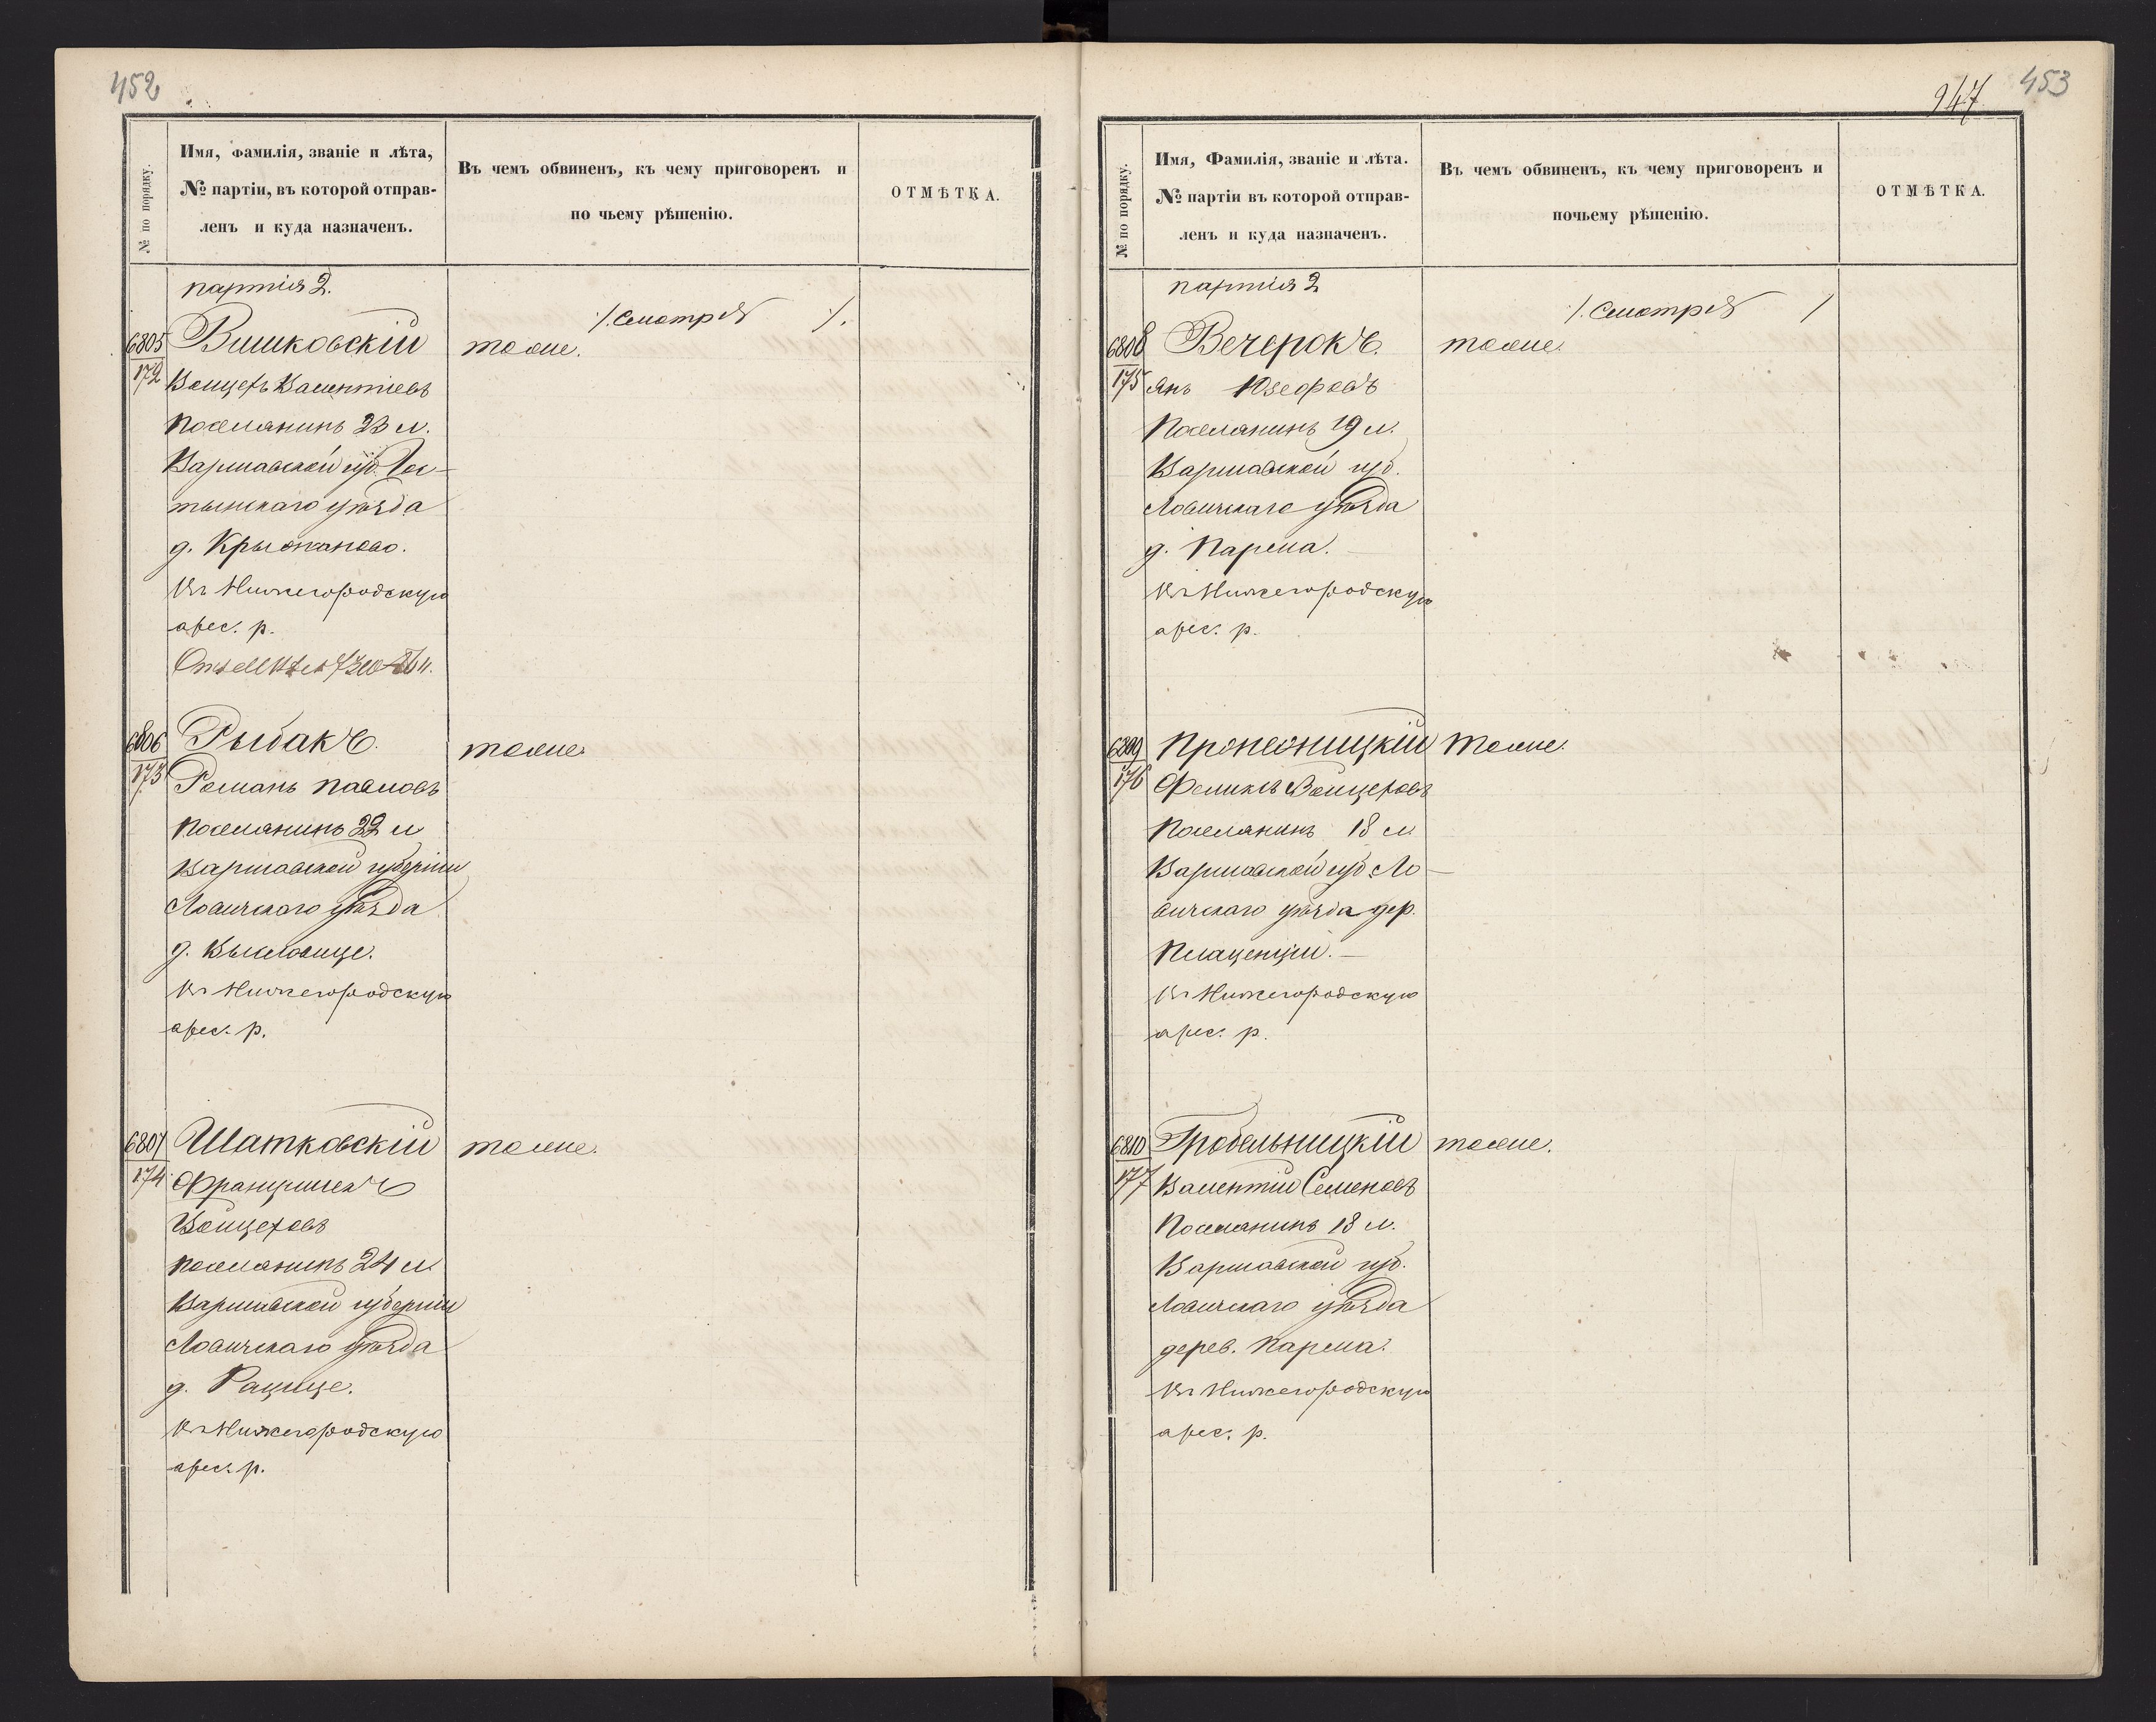 452
№ по порядку.
Имя, Фамилія, званіе и лѣта,
№ партіи, въ которой отправ-
ленъ и куда назначенъ.
Въ чемъ обвиненъ, къ чему приговоренъ и
по чьему рѣшенію.
ОТМѢТКА.
партія 2.
/. Смотрѣ /.
6805
172
Вишковскій
тоже.
Войцехъ Валентіевъ
Поселянинъ 23 л.
Варшавской губ. Гос-
тынскаго уѣзда
д. Крыжаново.
Въ Нижегородскую
арес. р.
6806
173
Рыбакъ.
тоже.
Романъ Павловъ
Поселянинъ 22 л
Варшавской губерніи
Ловичскаго уѣзда
д.
Въ Нижегородскую
арес. р.
6807
174
Шатковскій
тоже.
Францишекъ
Войцеховъ
поселянинъ 24 л.
Варшавской губерніи
Ловичскаго уѣзда
д. Рацице.
Въ Нижегородскую
арес. р.
453
947
№ по порядку.
Имя, Фамилія, званіе и лѣта.
№ партіи въ которой отправ-
ленъ и куда назначенъ.
Въ чемъ обвиненъ, къ чему приговоренъ и
почьему рѣшенію.
ОТМѢТКА.
партія 2
/. Смотрѣ /
6808
175
Вечерокъ.
тоже.
Янъ Юзефовъ
Поселянинъ 19 л.
Варшавской губ.
Ловичскаго уѣзда
д. Парма.
Въ Нижегородскую
арес. р.
6809
176
Проневницкій
Тоже.
Феликсъ Войцеховъ
Поселянинъ 18 л
Варшавской губ Ло-
вичскаго уѣзда дер.
Плаценціи.
Въ Нижегородскую
арес. р.
6810
177
Гробельницкій
тоже.
Валентій Семеновъ
Поселянинъ 18 л.
Варшавской губ.
Ловичскаго уѣзда
дерев. Парма.
Въ Нижегородскую
арес. р.